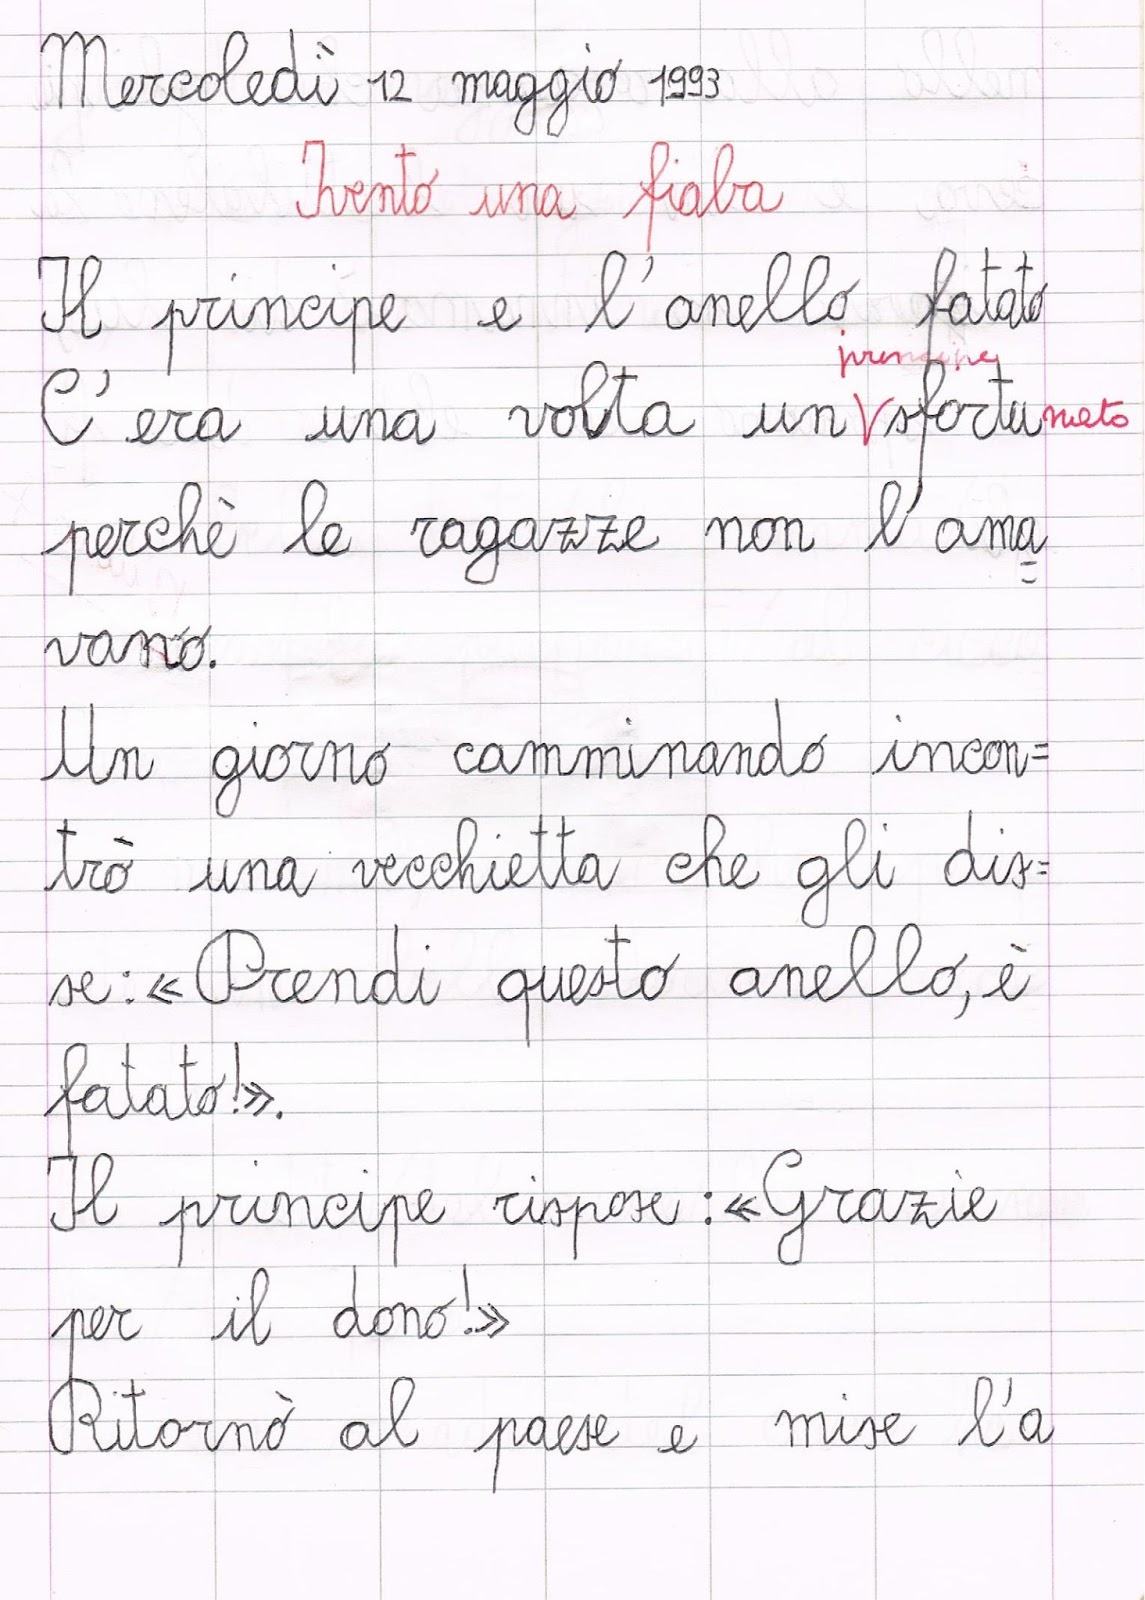 Mercoledì 12 maggio 1993
Ivento una fiaba
Il principe e l'anello fatato
principe
C'era una volta un V sfortunato
perchè le ragazze non l'ama=
vano.
Un giorno camminando incon=
trò una vecchietta che gli dis=
se: «Prendi questo anello, è
fatato!».
Il principe rispose: «Grazie
per il dono!»
Ritornò al paese e mise l'a